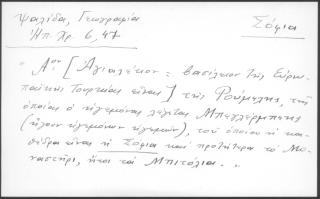 Ψαλίδα, Γεωγραφία
Ηπ. Χρ. 6, 47
Σόφια
" Αον [ Αγιαλέκιον = βασίλειον της Ευρω-
παϊκής Τουρκίας είναι ] της Ρούμελης, της
οποίας ο ηγεμόνας λέγεται Μπεγλέρμπεης
(ήγουν ηγεμόνων ηγεμών), του οποίου η κα-
θέδρα είναι η Σόφια και προτήτερα το Μο-
ναστήρι, ήτοι τα Μπιτόλια. "